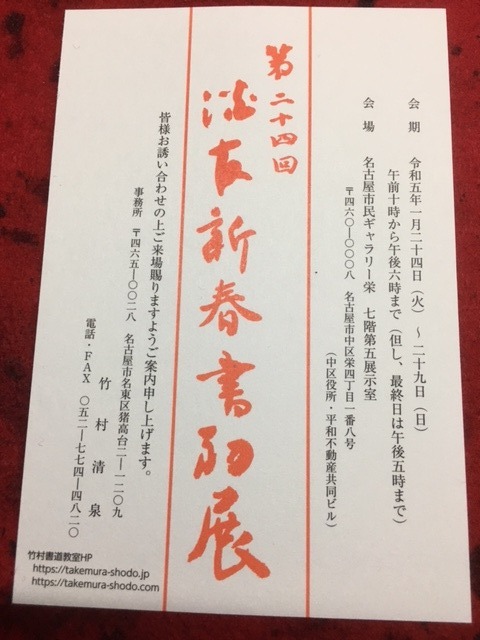 会期　令和五年一月二十四日（火）～二十九日（日）
午前十時から午後六時まで（但し、最終日は午後五時まで）
会場　名古屋市民ギャラリー栄　七階第五展示室
〒四六〇―〇〇〇八　名古屋市中区栄四丁目一番八号
（中区役所・平和不動産共同ビル）
第二十四回
友新春書初展
皆様お誘い合わせの上ご来場賜りますようご案内申し上げます。
事務所　〒四六五―〇〇二八　名古屋市名東区猪高台二―一二〇九
竹村清泉
電話・ＦＡＸ　〇五二―七七四―四八二〇
竹村書道教室HP
https://takemura-shodo.jp
https://takemura-shodo.com